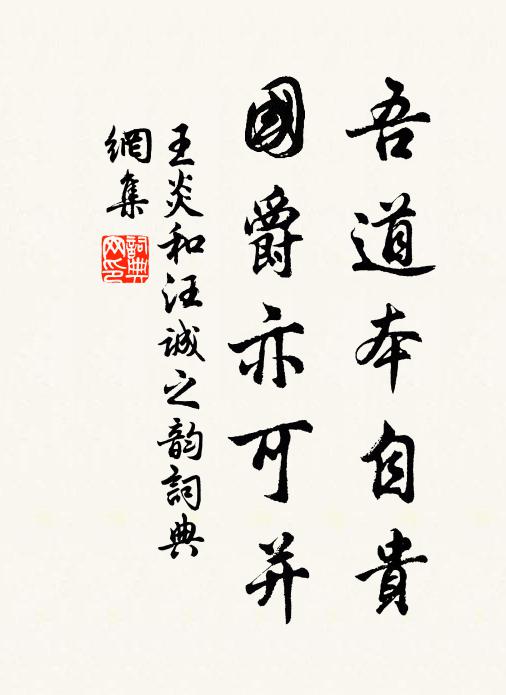 吾道本自貴
國爵亦可并
王炎和汪诚之韵詞典
網集
詞典网印